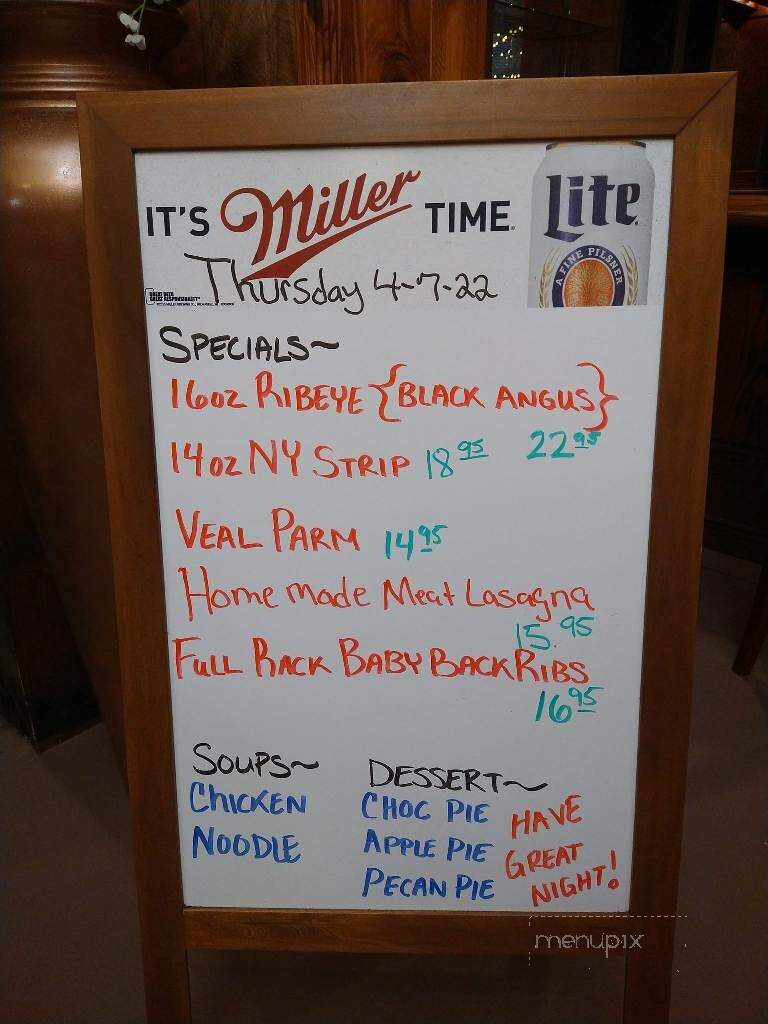 IT'S Miller TIME. Lite
A FINE PILSNER
Thursday 4-7-22
GREAT BEER
GREAT RESPONSIBILITY
SPECIALS~
16oz RIBEYE {BLACK ANGUS}
22 95
14oz NY STRIP 18 95
VEAL PARM 14 95
Home made Meat Lasagna
15.95
FULL RACK BABY BACK RIBS
16 95
SOUPS~
CHICKEN
NOODLE
DESSERT~
CHOC PIE
APPLE PIE
PECAN PIE
HAVE
GREAT
NIGHT!
menupix